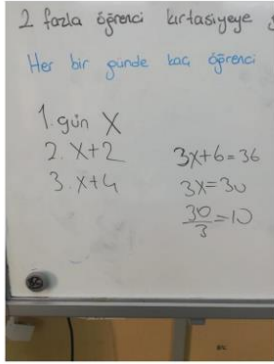 2 fazla öğrenci kırtasiyeye
Her bir günde kaç öğrenci
1. gün X
2. X+2
3. X+4
3X+6=36
3X=30
30/3=10